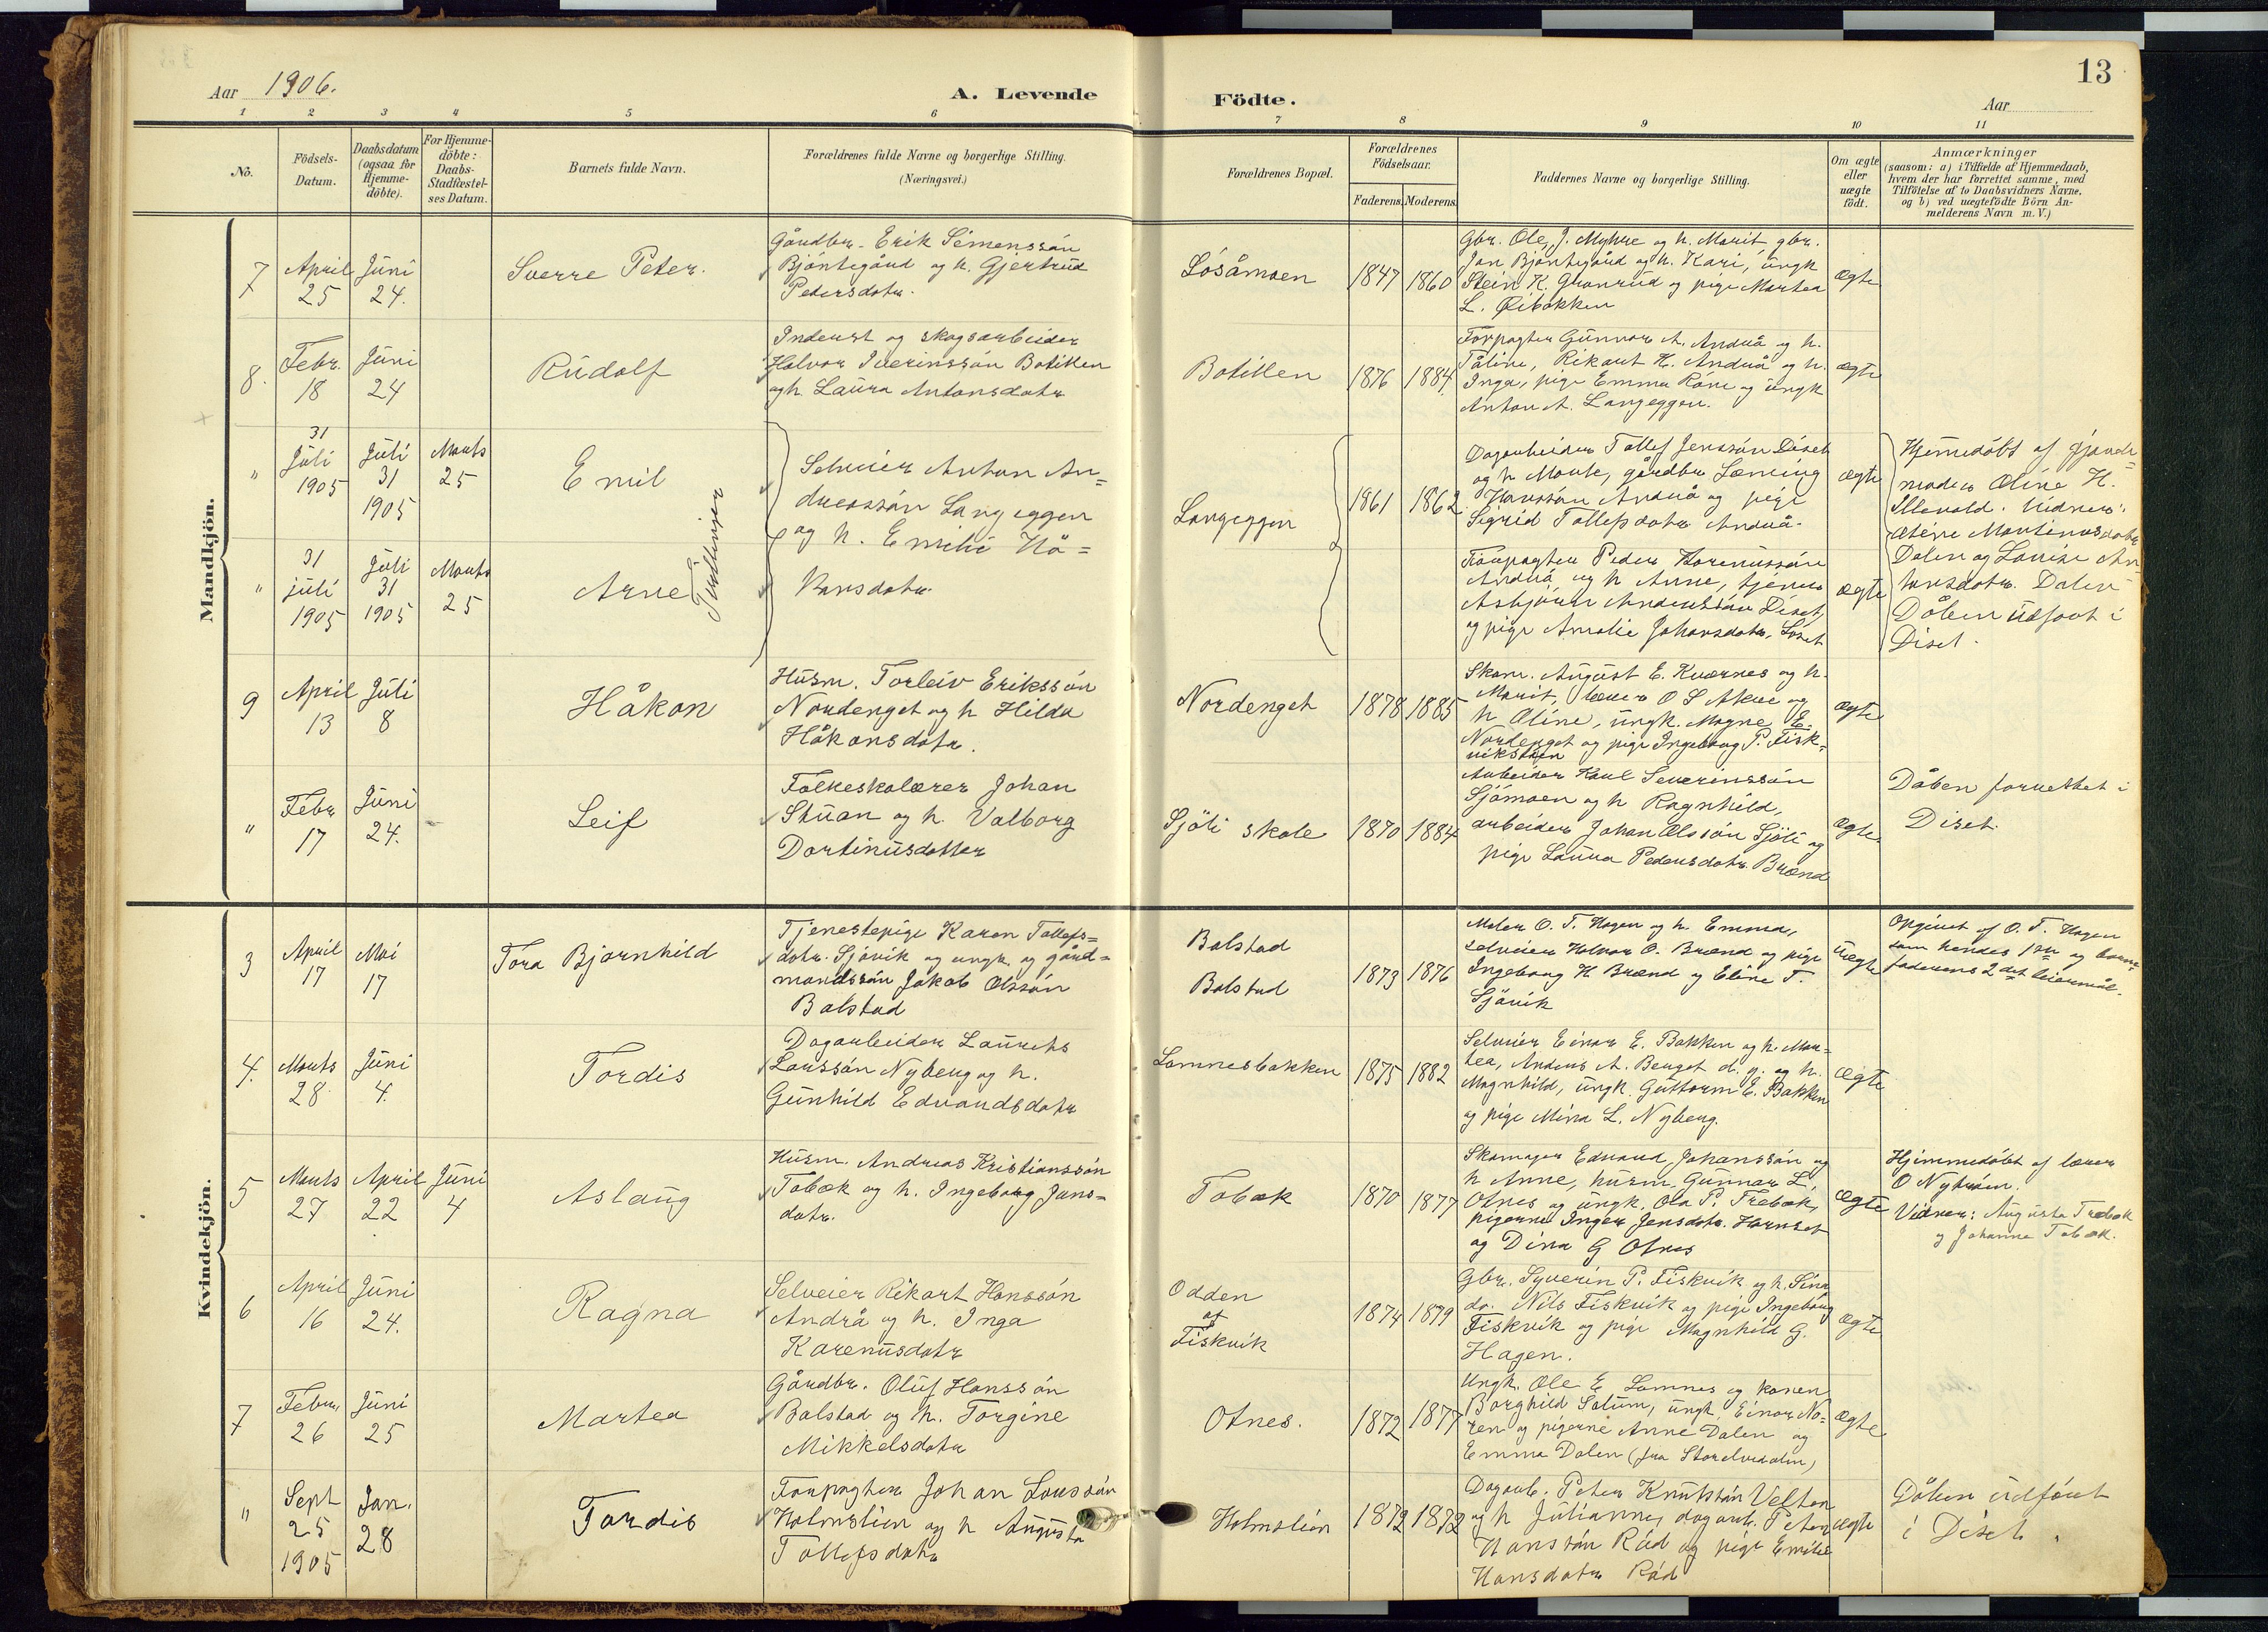 13
Aar 1906.
A. Levende
Födte.
Aar
1 2 3 4 5 6 7 8 9 10 11
No.
Födsels-
Datum.
Daabsdatum
(ogsaa for
Hjemme-
döbte).
For Hjemme-
döbte:
Daabs-
Stadfæstel-
ses Datum.
Barnets fulde Navn.
Forældrenes fulde Navne og borgerlige Stilling.
(Næringsvei.)
Forældrenes Bopæl.
Forældrenes
Födselsaar.
Faderens. Moderens.
Faddernes Navne og borgerlige Stilling.
Om ægte
eller
uægte
födt.
Anmærkninger
(saasom: a) i Tilfælde af Hjemmedaab,
hvem der har forrettet samme, med
Tilföielse af to Daabsvidners Navne.
og b) ved uægtefödte Börn An-
melderens Navn m. V.)
Mandkjön.
7
April
25
Juni
24.
Sverre Peter.
Gårdbr. Erik Simenssön
Bjöntegård og h. Gjertrud
Pedersdatr.
Lösåmoen
1847 1860
Gbr. Ole J. Myhre og h. Marit, gbr.
Jan Bjöntegård og h. Kari, ungk
Stein K. Granrud og pige Martea
L. Öibakken
Ægte
8.
Febr.
18
Juni
24
Rudolf
Inderst og skogsarbeider
Halvor Iverinssön Botillen
og h. Laura Antonsdatr
Botillen
1876 1884.
Forpagter Gunnar A. Andrå og h.
Tåline, Rikart H. Andrå og h.
Inga, pige Emma Råne og ungk
Anton A. Langeggen.
Ægte
"
31
Juli
1905
Juli
31
1905
Marts
25
Emil
Selveier Anton An=
dreassön Langeggen
og h. Emilie Hå=
Langeggen
1861 1862
Dagarbeider Tollef Jenssön Diset
og h Marte, gårdbr Læming
Hanssön Andrå og pige
Sigrid Tollefsdatr Andrå.
Ægte
Hjemmedöbt af gjorde=
moder Oline H.
Illevold. Vidner:
Oline Martinusdatr
Dalen og Lovise An
tonsdatr. Dalen
Dåben udfört i
Diset.
"
31
juli
1905
Juli
31
1905
Marts
25
Arne
Tvillinger
kansdatr.
Forpagter Peder Karenussön
Andrå og h Anne, tjener
Asbjörn Anderssön Diset,
og pige Amalie Johansdatr. Löset
Ægte
9
April
13
Juli
8
Håkon
Husm. Torleiv Erikssön
Nordenget og h Hilda
Håkonsdatr.
Nordenget
1878 1885
Skom. August E. Kværnes og h.
Marit, lærer O S Akre og
h Oline, ungk. Magne E.
Nordenget og pige Ingeborg P. Fisk=
vikstuen
Ægte
"
Febr
17
Juni
24.
Leif
Folkeskolærer Johan
Stuan og h. Valborg
Dortinusdatter
Sjöli skole
1870 1884
Arbeider Karl Severinssön
Sjömoen og h Ragnhild,
arbeider Johan Olssön Sjöli og
pige Laura Pedersdatr. Brænd
Ægte
Dåben forrettet i
Diset.
Kvindekjön.
3
April
17
Mai
17
Tora Bjørnhild
Tjenestepige Karen Tollefs=
datr. Sjövik og ungk. og gård=
mandssön Jakob Olssön
Balstad
Balstad
Balstad
1873 1876
Maler O. T. Hagen og h. Emma,
selveier Halvor O. Brænd og pige
Ingeborg H. Brænd og Eline T.
Sjövik
Uægte
Opgivet af O. T. Hagen
som hendes 1ste og barne
faderens 2det leiermål.
4.
Marts
28
Juni
4.
Tordis
Dagarbeider Laurits
Larssön Nyberg og h.
Gunhild Edvardsdatr
Lomnesbakken
1875 1882
Selveier Einar E. Bakken og h. Mar=
tea, Anders A. Berget d. y. og h.
Magnhild, ungk. Guttorm E. Bakken
og pige Mina L. Nyberg.
Ægte
5
Marts
27
April
22
Juni
4
Aslaug
Husm. Andreas Kristianssön
Tobæk og h. Ingeborg Jans=
datr.
Tobæk
1870 1877
Skomager Edvard Johanssön og
h Anne, husm. Gunnar L.
Otnes og ungk. Ola P. Træbæk,
pigerne Inger Jensdatr. Harnset
og Dina G Otnes
Ægte
Hjemmedöbt af lærer
O Nytröen.
Vidner: Augusta Træbæk
og Johanna Tobæk.
6
April
16
Juni
24.
Ragna
Selveier Rikart Hanssön
Andrå og h. Inga
Karenusdatr
Odden
af
Fiskvik
1874 1879
Gbr. Syverin P. Fiskvik og h. Sina
do. Nils Fiskvik og pige Ingeborg
Fiskvik og pige Magnhild G.
Hagen.
Ægte
7
Februar
26
Juni
25
Martea
Gårdbr. Oluf Hanssön
Balstad og h. Torgine
Mikkelsdatr
Otnes.
1872 1877
Ungk. Ole E Lomnes og konen
Borghild Solum, ungk. Einar No=
ren og pigerne Anne Dalen og
Emma Dalen (fra Storelvedalen)
Ægte
"
Sept
25
1905
Jan.
28
Tordis
Forpagter Johan Larssön
Holmslien og h Augusta
Tollefsdatr
Holmslien
1872 1872
Dagarb. Peter Knutssön Velten
og h Julianne, dagarb. Peter
Hanssön Råd og pige Emilie
Hansdatr Råd
Ægte
Dåben udfört
i Diset.